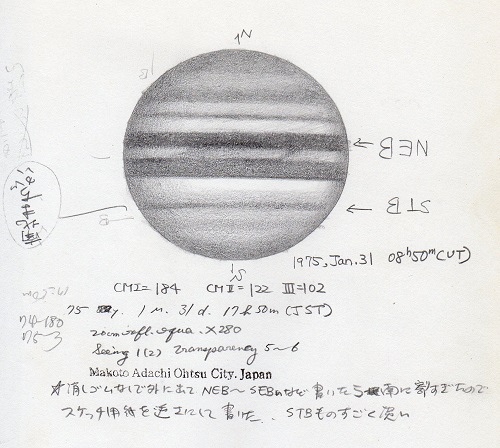 N
NEB
STB
S
1975, Jan. 31 08h50m (UT)
CMI= 184 CMII= 122 III=102
75 y. 1 M. 31d. 17h 50m (JST)
20cm refl. equa. ×280
Seeing 1(2) transparency 5~6
74-180
75-3
Makoto Adachi Ohtsu City. Japan
消しゴムなしで外に出て NEB~SEBnなど書いたら南に寄すぎたので
スケッチ用紙を逆さにして書いた. STBものすごく淡い